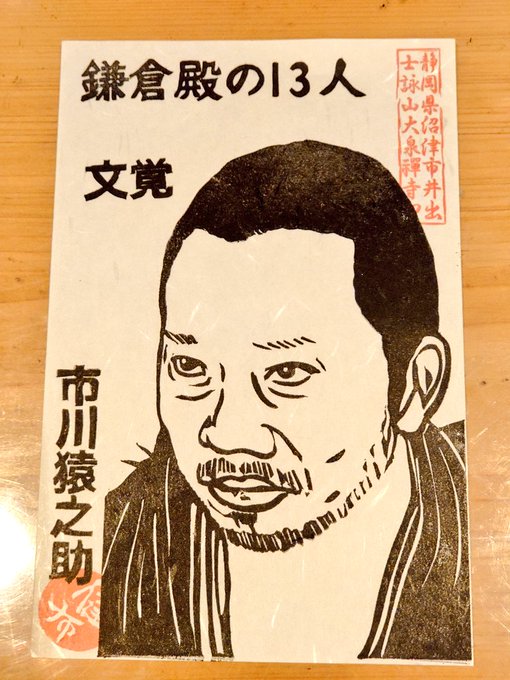 鎌倉殿の13人
文覚
静岡県沼津市井出
士詠山大泉禅寺
市川猿之助